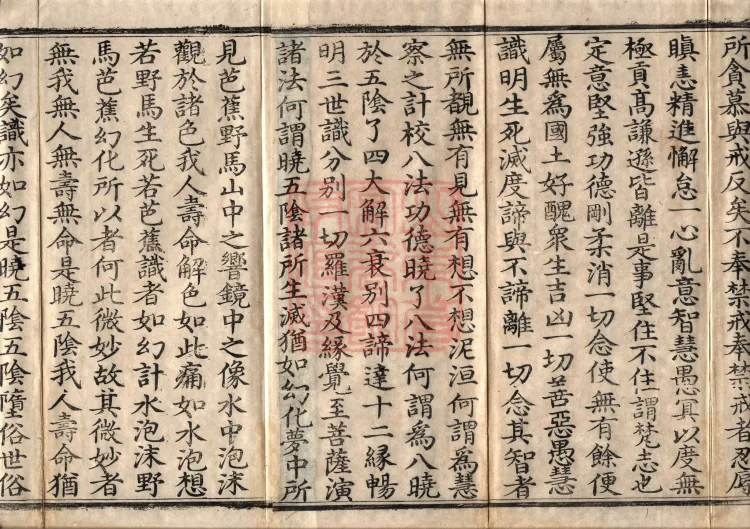 所貪慕與戒反矣不奉禁戒奉禁戒者忍辱
瞋恚精進懈怠一心亂意智慧愚冥以度無
極貢高謙遜皆離是事堅住不住謂梵志也
定意堅強功德剛柔消一切念使無有餘便
屬無為國土好醜衆生吉凶一切苦惡愚慧
識明生死滅度諦與不諦離一切念其智者
無所覩無有見無有想不想泥洹何謂為慧
察之計校八法功德曉了八法何謂為八曉
於五陰了四大解六衰別四諦達十二緣暢
明三世識分別一切羅漢及緣覺至菩薩演
諸法何謂曉五陰諸所生滅猶如幻化夢中所
見芭蕉野馬山中之響鏡中之像水中泡沫
觀於諸色我人壽命解色如此痛如水泡想
若野馬生死若芭蕉識者如幻計水泡沫野
馬芭蕉幻化所以者何此微妙故其微妙者
無我無人無壽無命是曉五陰我人壽命猶
如幻矣識亦如幻是曉五陰五陰墮俗世俗